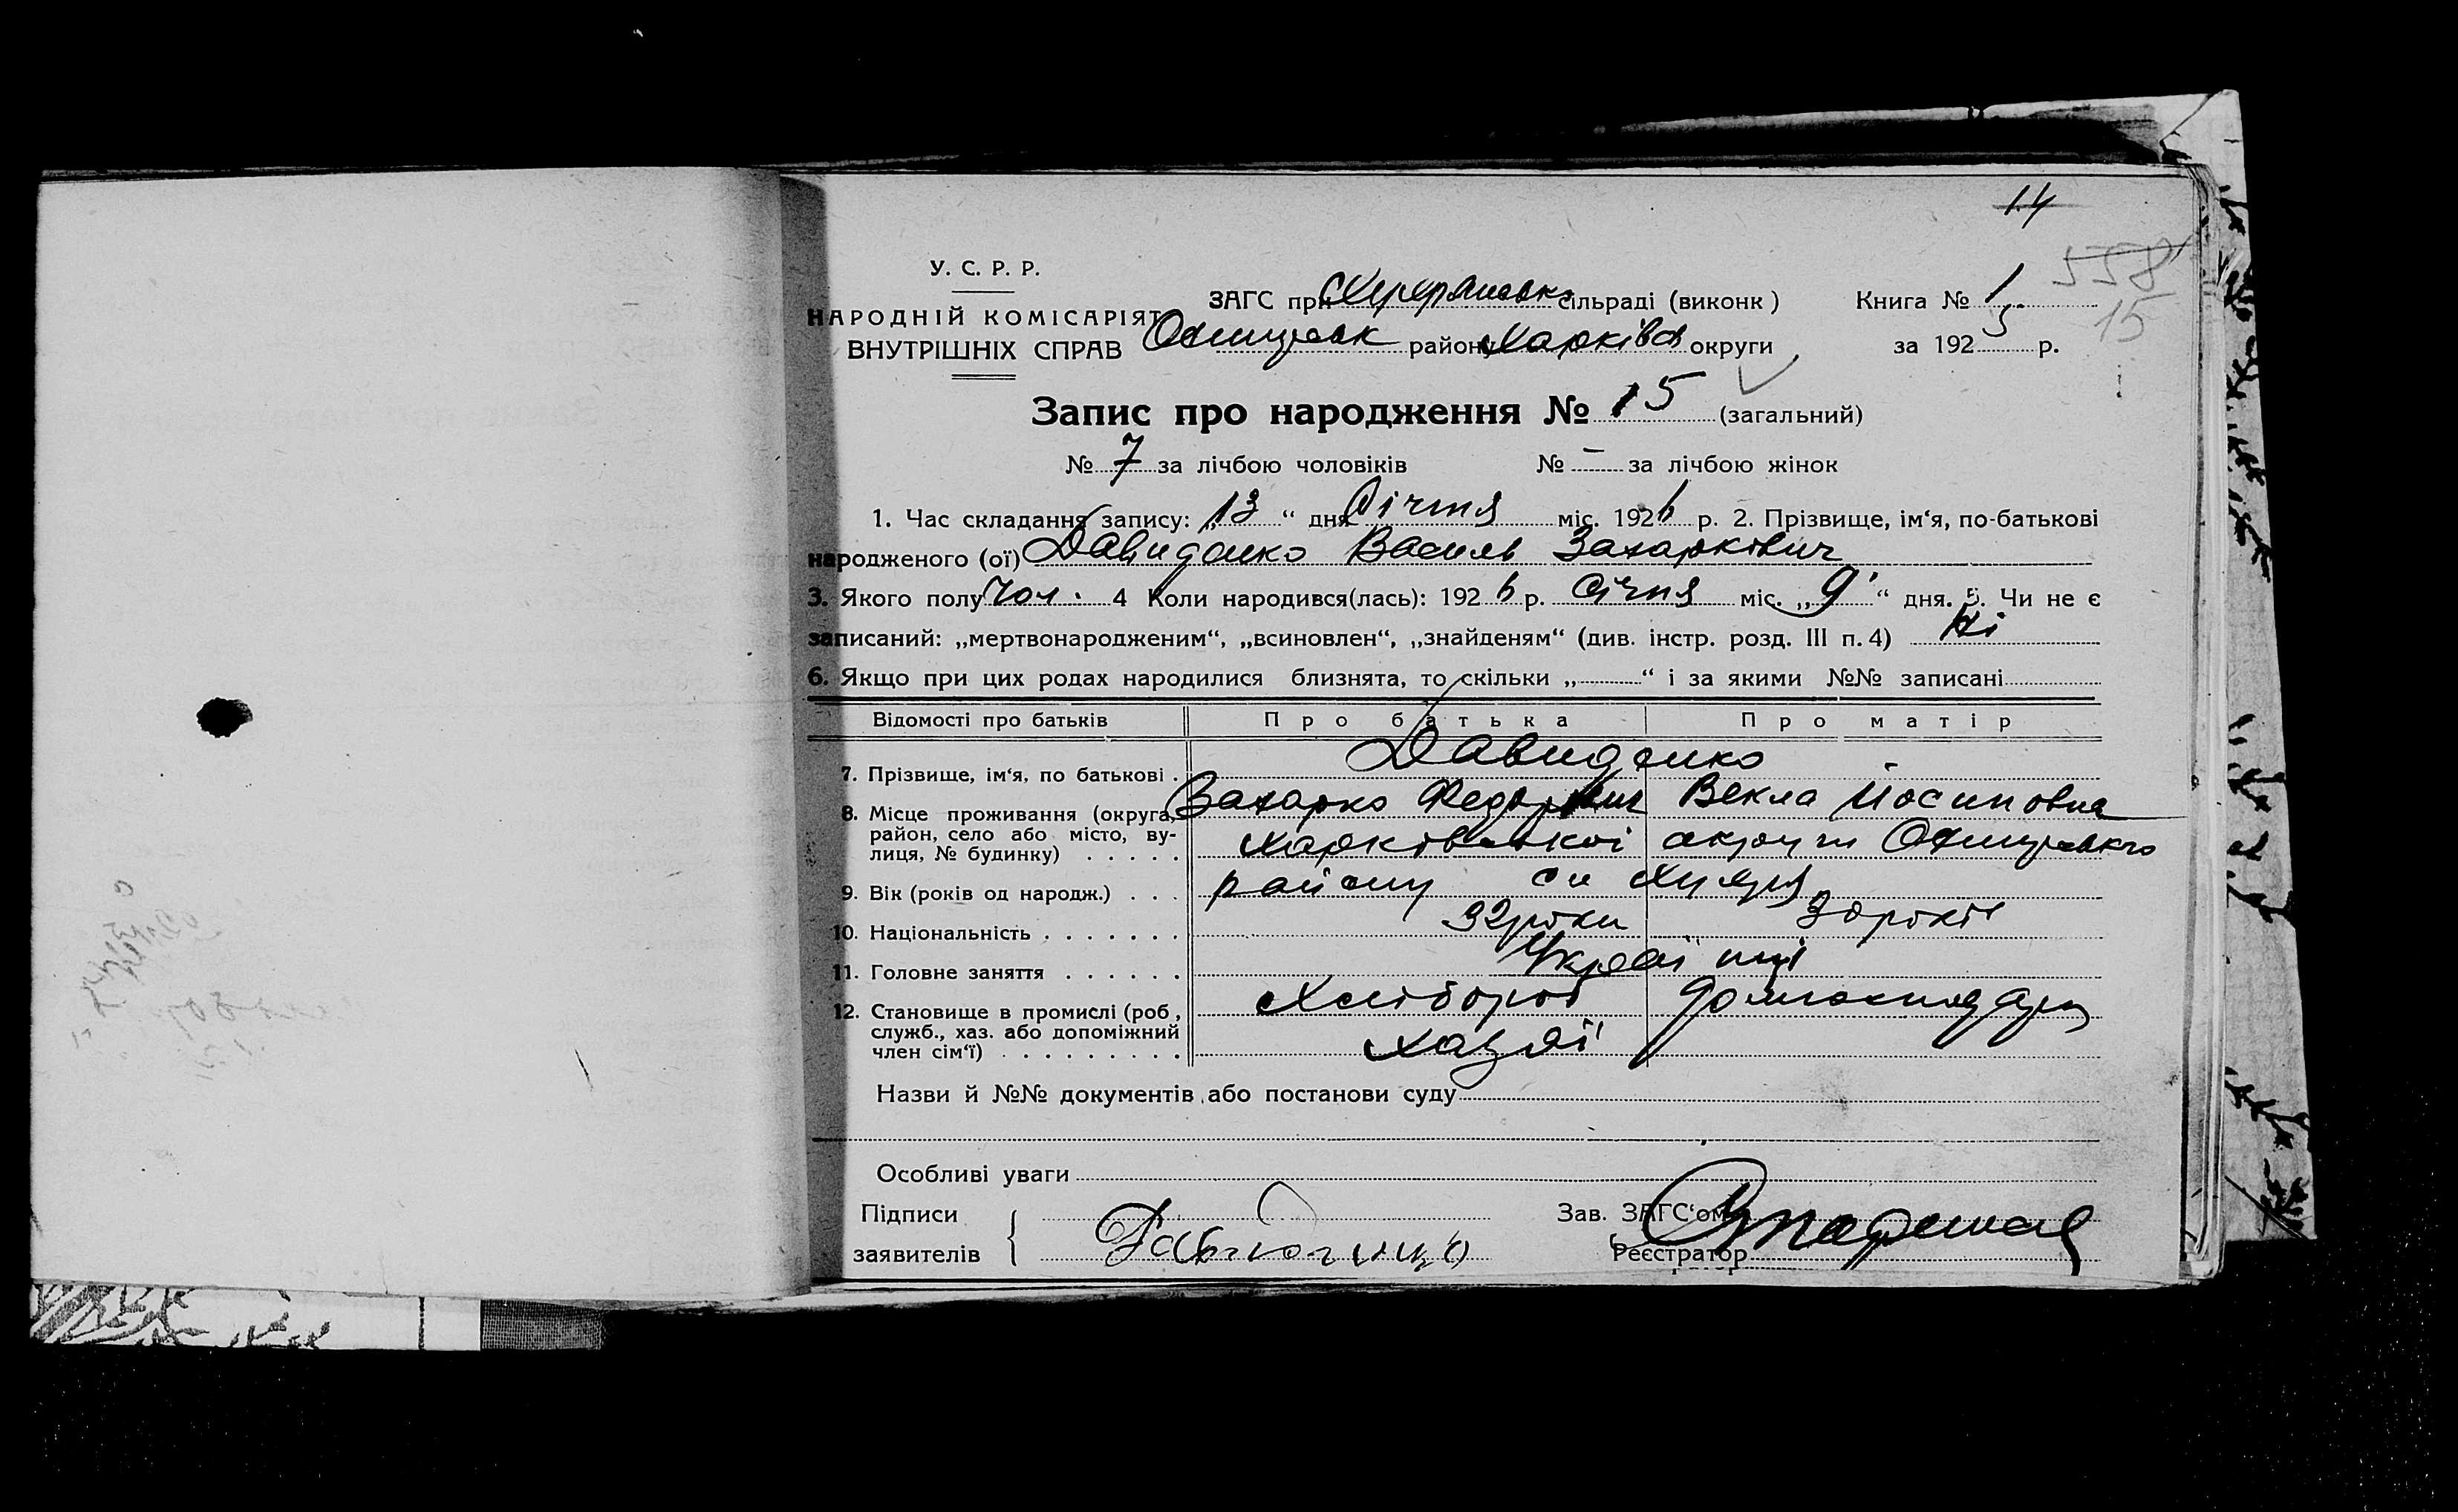 14
У. С. Р. Р.
НАРОДНІЙ КОМІСАРІЯТ
ВНУТРІШНІХ СПРАВ
ЗАГС при сільраді (виконк)
району Харківсь округи
Книга № 1
за 1925 р.
558
15
Запис про народження № 15 (загальний)
№ 7 за лічбою чоловіків № - за лічбою жінок
1. Час складання запису: „13“ дня Січня міс. 1926 р. 2. Прізвище, ім‘я, по-батькові
народженого (ої) Давиденко Василь Захаркович
3. Якого полу Чол. 4 Коли народився(лась): 1926 р. Січня міс. „9“ дня. 5. Чи не є
записаний: „мертвонародженим“, „всиновлен“, „знайденям“ (див. інстр. розд. III п. 4) Ні
6. Якщо при цих родах народилися близнята, то скільки „ “ і за якими №№ записані
Відомості про батьків Про батька Про матір
7. Прізвище, ім‘я, по батькові . Давиденко
Захарко Федорович Векла Йосиповна
8. Місце проживання (округа,
район, село або місто, ву-
лиця, № будинку) . . . . . Харківської округи
9. Вік (років од народж.) . . . району
32 роки 30 років
10. Національність . . . . . . .
Українці
11. Головне заняття . . . . . .
Хлібороб домогосподарка
12. Становище в промислі (роб.,
служб., хаз. або допоміжний
член сім‘ї) . . . . . . . . . хазяї
Назви й №№ документів або постанови суду
Особливі уваги
Підписи
заявителів
Зав. ЗАГС‘ом
Реєстратор